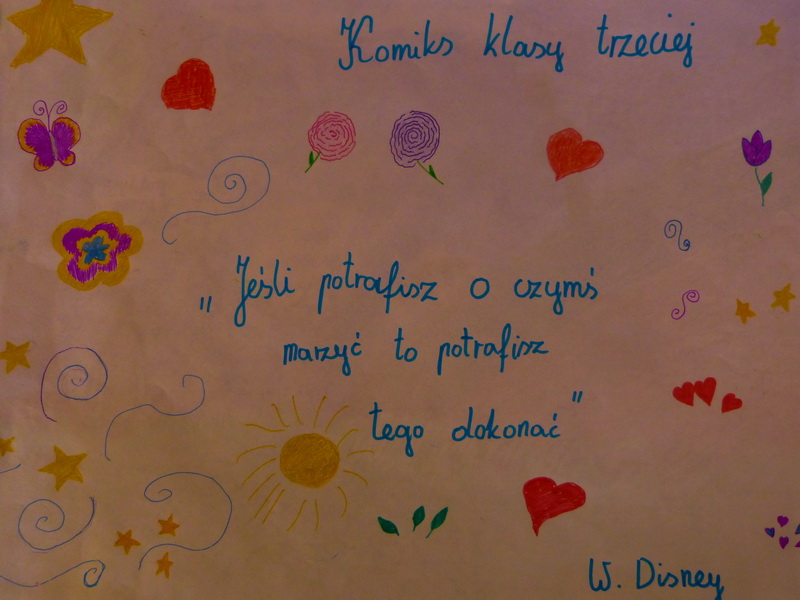 Komiks klasy trzeciej
„Jeśli potrafisz o czymś
marzyć to potrafisz
tego dokonać"
W. Disney